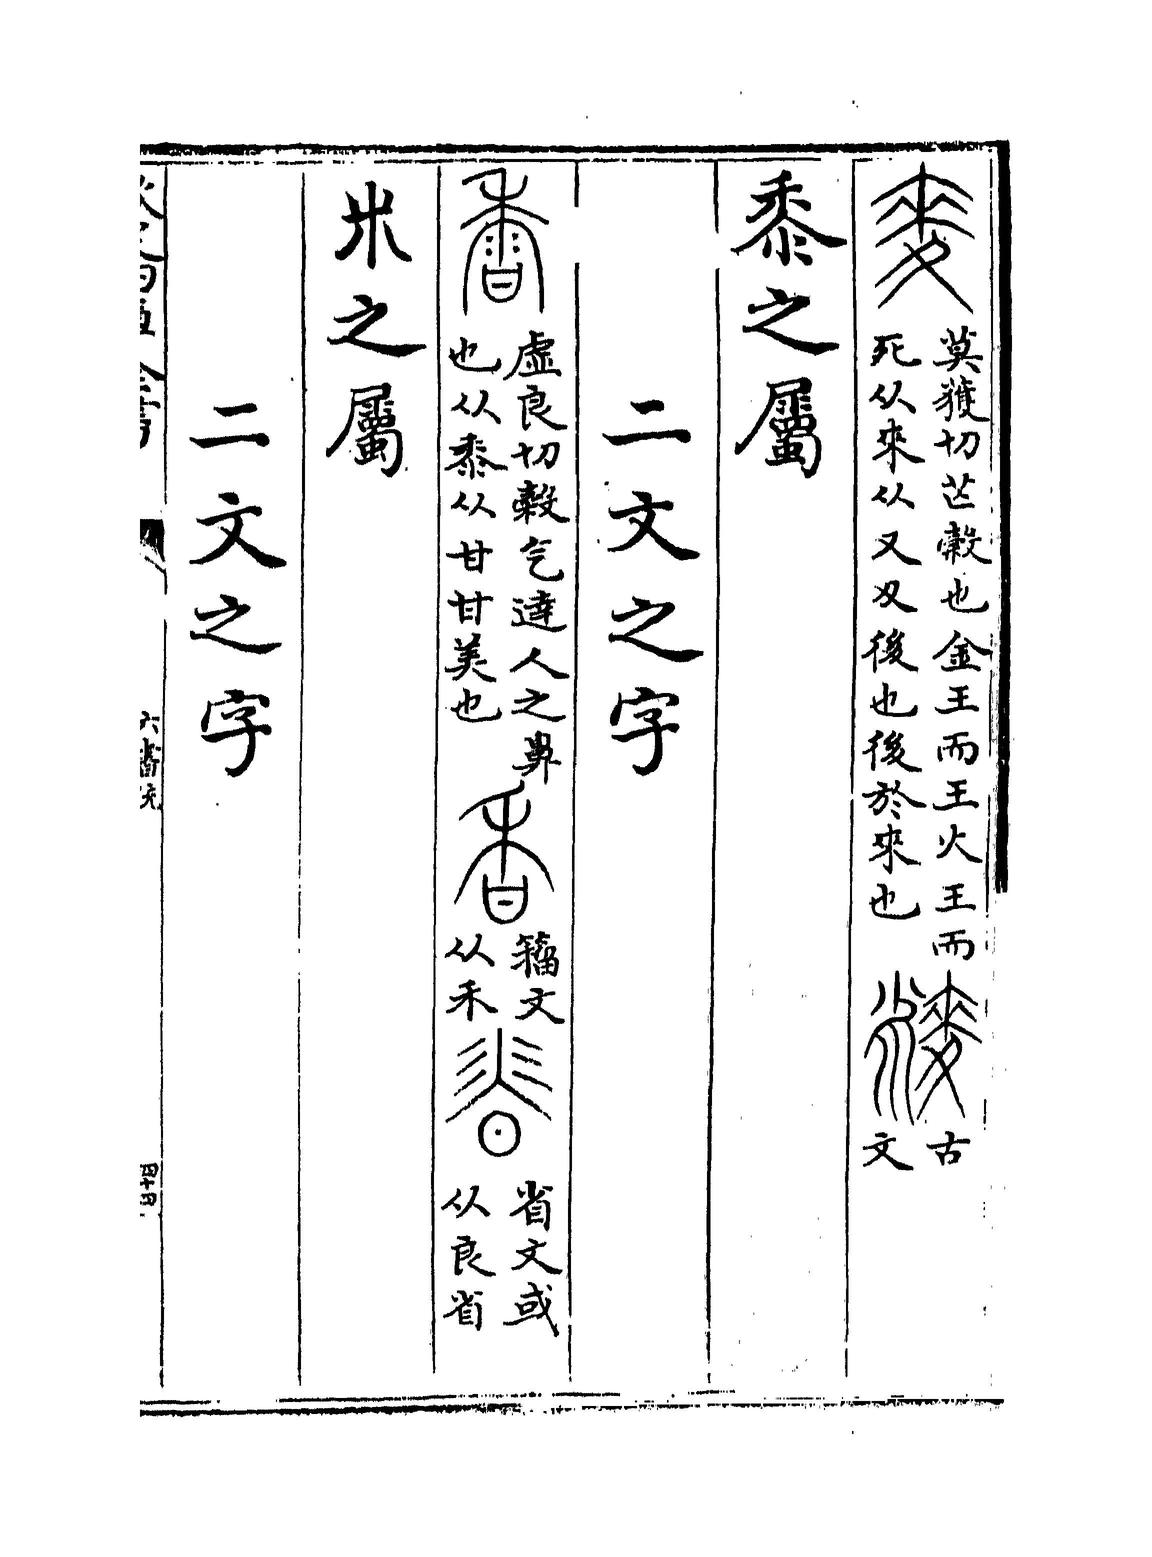 麥
莫獲切芒榖也金王而王火王而
死从來从又夊後也後於來也
古
文
黍之屬
二文之字
香
虛良切榖气達人之鼻
也从黍从甘甘美也
香
籀文
从禾
省文或
从良省
米之屬
二文之字
四十四